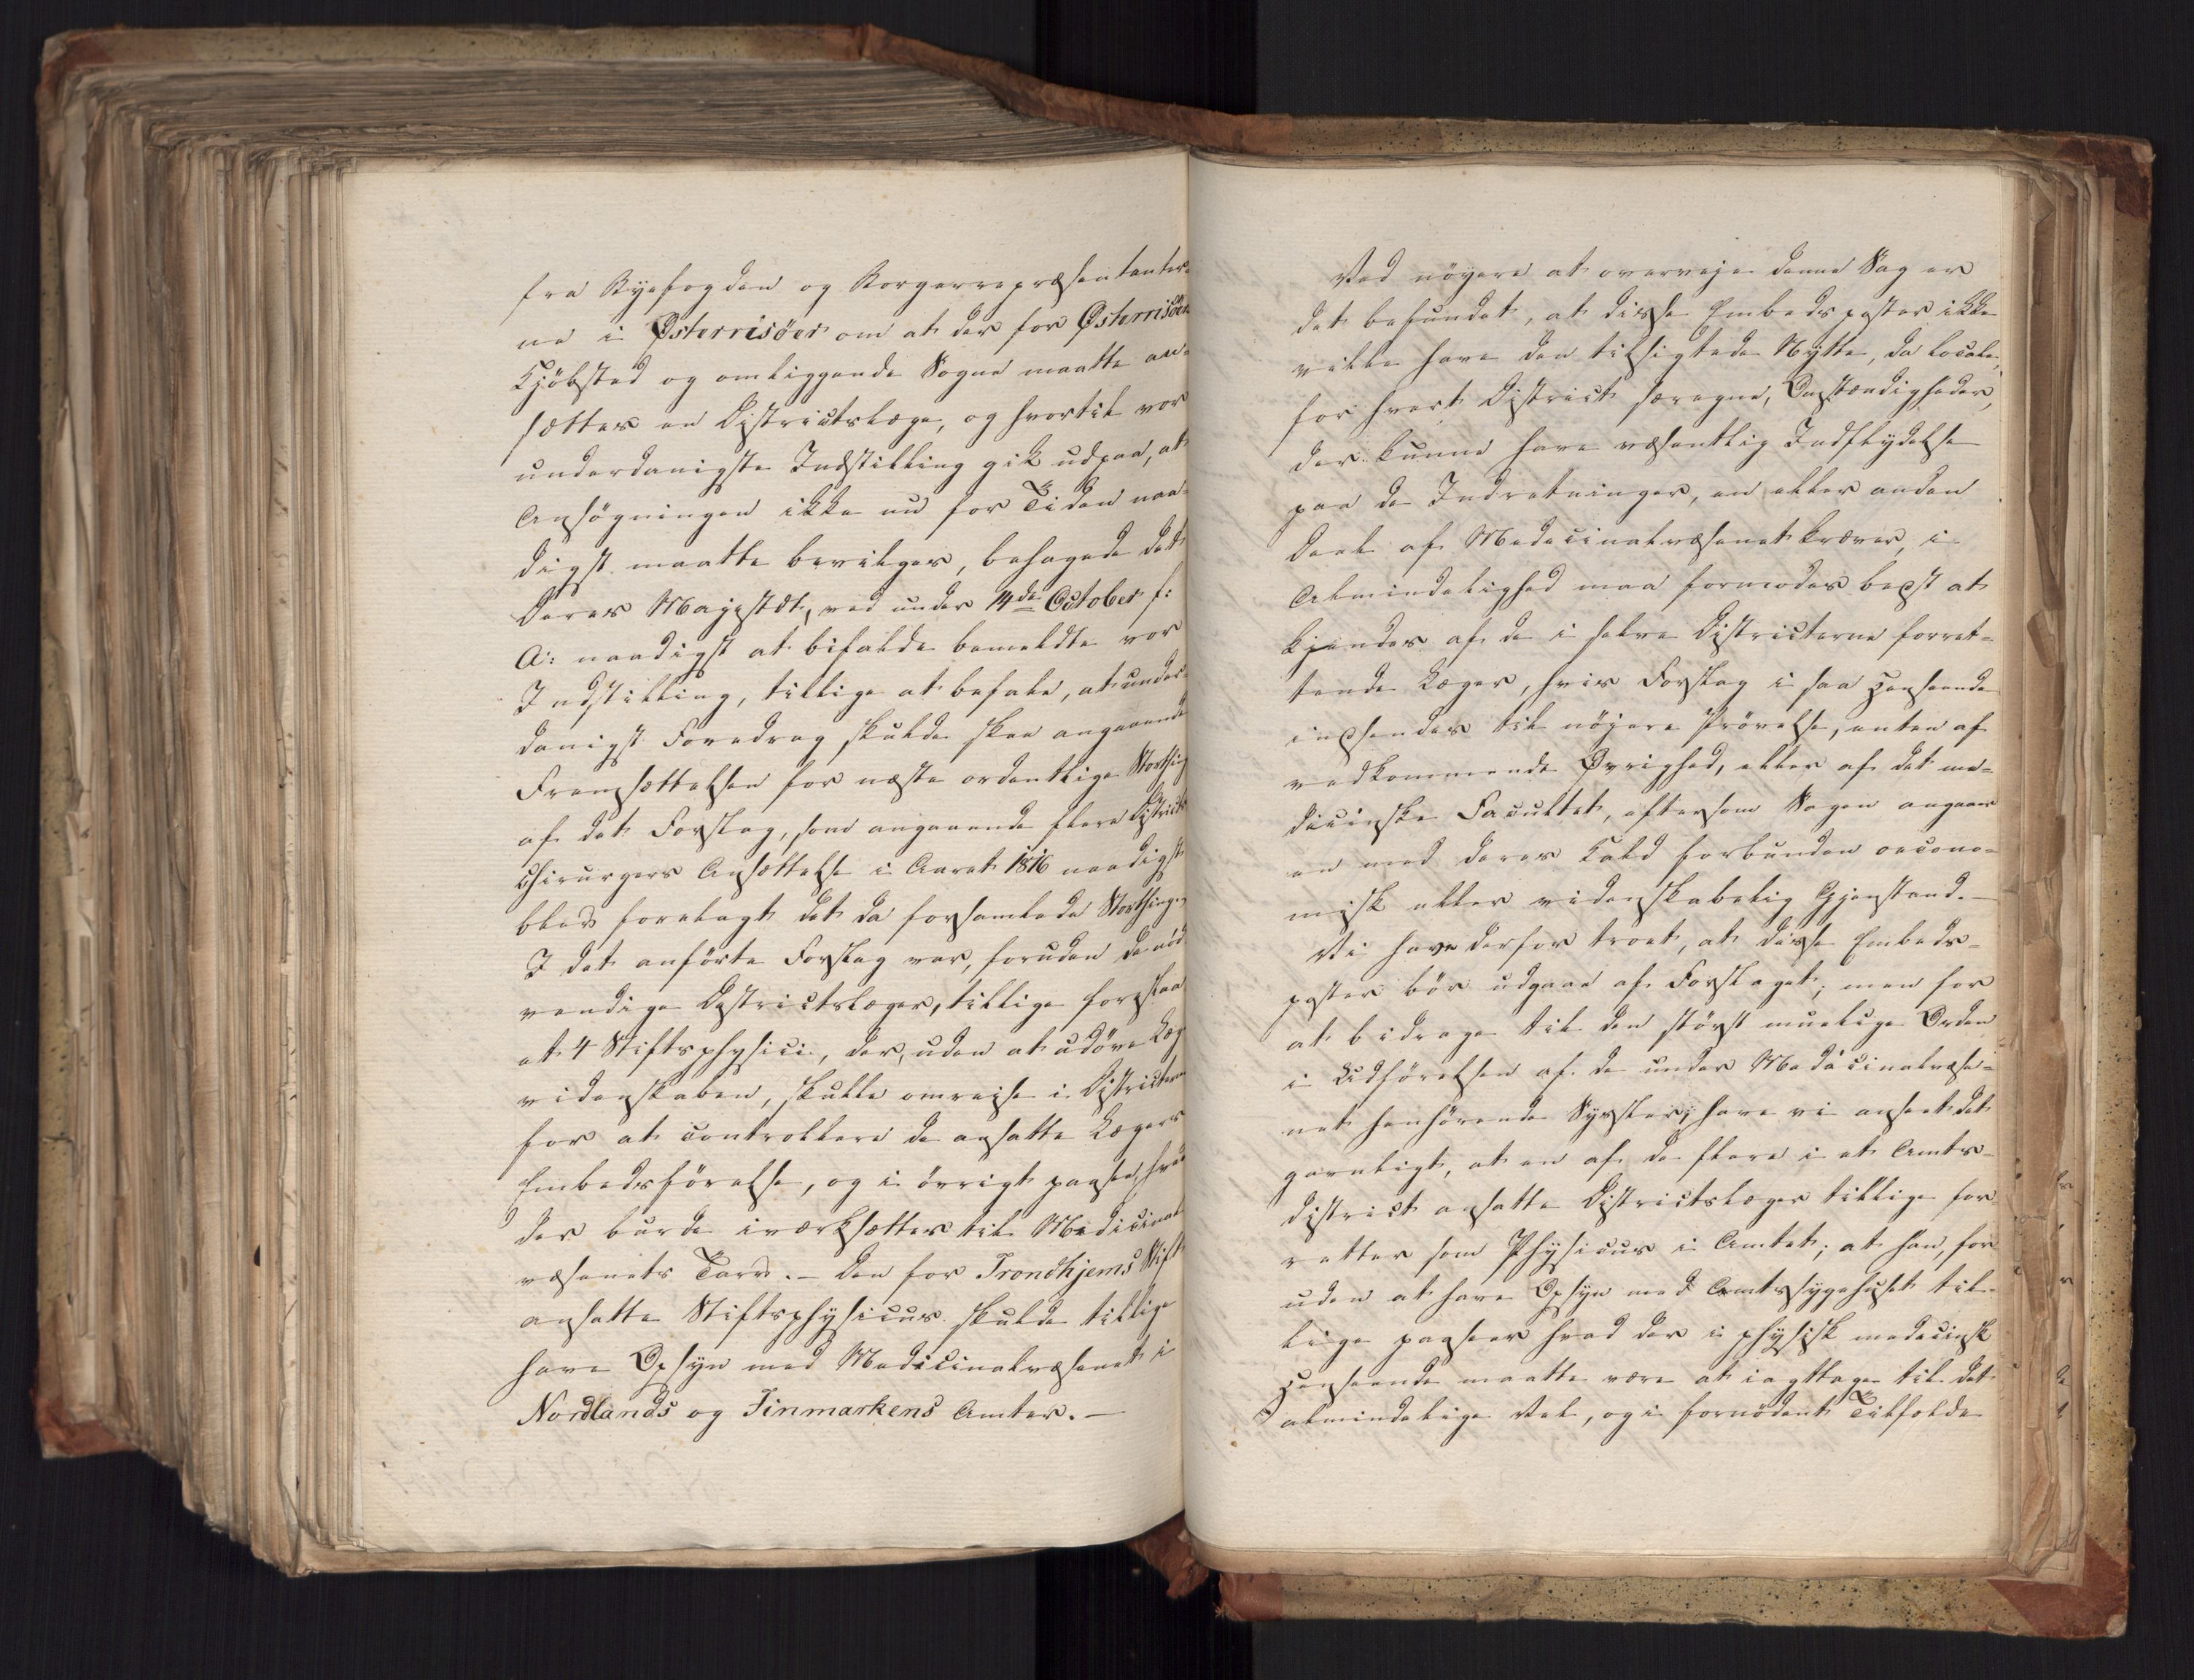 fra Byefogden og Borgerrepræsentanter-
ne i Østerrisöer om at der for Østerrisöers
Kjöbsted og omliggende Sogne maatte an-
sættes en Districtslæge, og hvortil vor
underdanigste Indstilling gik ud paa, at
Ansögningen ikke nu for Tiden naa-
digst maatte bevilges, behagede det
Deres Majestæt, ved under 14de October f:
A: naadigst at bifalde bemeldte vor
Indstilling, tillige at befale, at under-
danigst Foredrag skulde skee angaaende
Fremsættelsen for næste ordentlige Storthing
af det Forslag, som angaaende flere District
Chirurgers Ansættelse i Aaret 1816 naadigst
blev forelagt det da forsamlede Storthing.
I det anförte Forslag var, foruden de nöd-
vendige Districtslæger, tillige foreslaa-
et 4 Stiftsphysici, der, uden at udöve Læge-
videnskaben, skulle omreise i Districterne
for at controllere de ansatte Lægers
Embedsförelse, og i övrigt paasee, hvad
der burde iværksættes til Medicinal
væsenets Tarv. – Den for Trondhjems Stift
ansatte Stiftsphysicus skulde tillige
have Opsyn med Medicinalvæsenet i
Nordlands og Finmarkens Amter. –
Ved nöyere at overveje denne Sag er
det befundet, at disse Embedsposter ikke
ville have den tilsigtede Nytte, da locale,
for hvert District særegne, Omstændigheder,
der kunne have væsentlig Indflydelse
paa de Indretninger, en eller anden
Deel af Medicinalvæsenet kræver, i
Almindelighed maa formodes best at
kjendes af de i selve Districterne forret-
tende Læger, hvis Forslag i saa Henseende
indsendes til nöjere Prövelse, enten af
vedkommende Øvrighed, eller af det me-
dicinske Facultet, eftersom Sagen angaaer
en med deres Kald forbunden oecono-
misk eller videnskabelig Gjenstand. –
Vi have derfor troet, at disse Embeds-
poster bör udgaae af Forslaget; men for
at bidrage til den störst muelige Orden
i Udförelsen af de under Medicinalvæse-
net henhörende Sysler, have vi anseet det
gavnligt, at en af de flere i et Amts-
district ansatte Districtslæger tillige for-
retter som Physicus i Amtet; at han, for
uden at have Opsyn med Amtssygehuset til-
lige paaseer hvad der i physisk medicinsk
Henseende maatte være at iagttage til det
almindelige Vel, og i fornödent Tilfælde